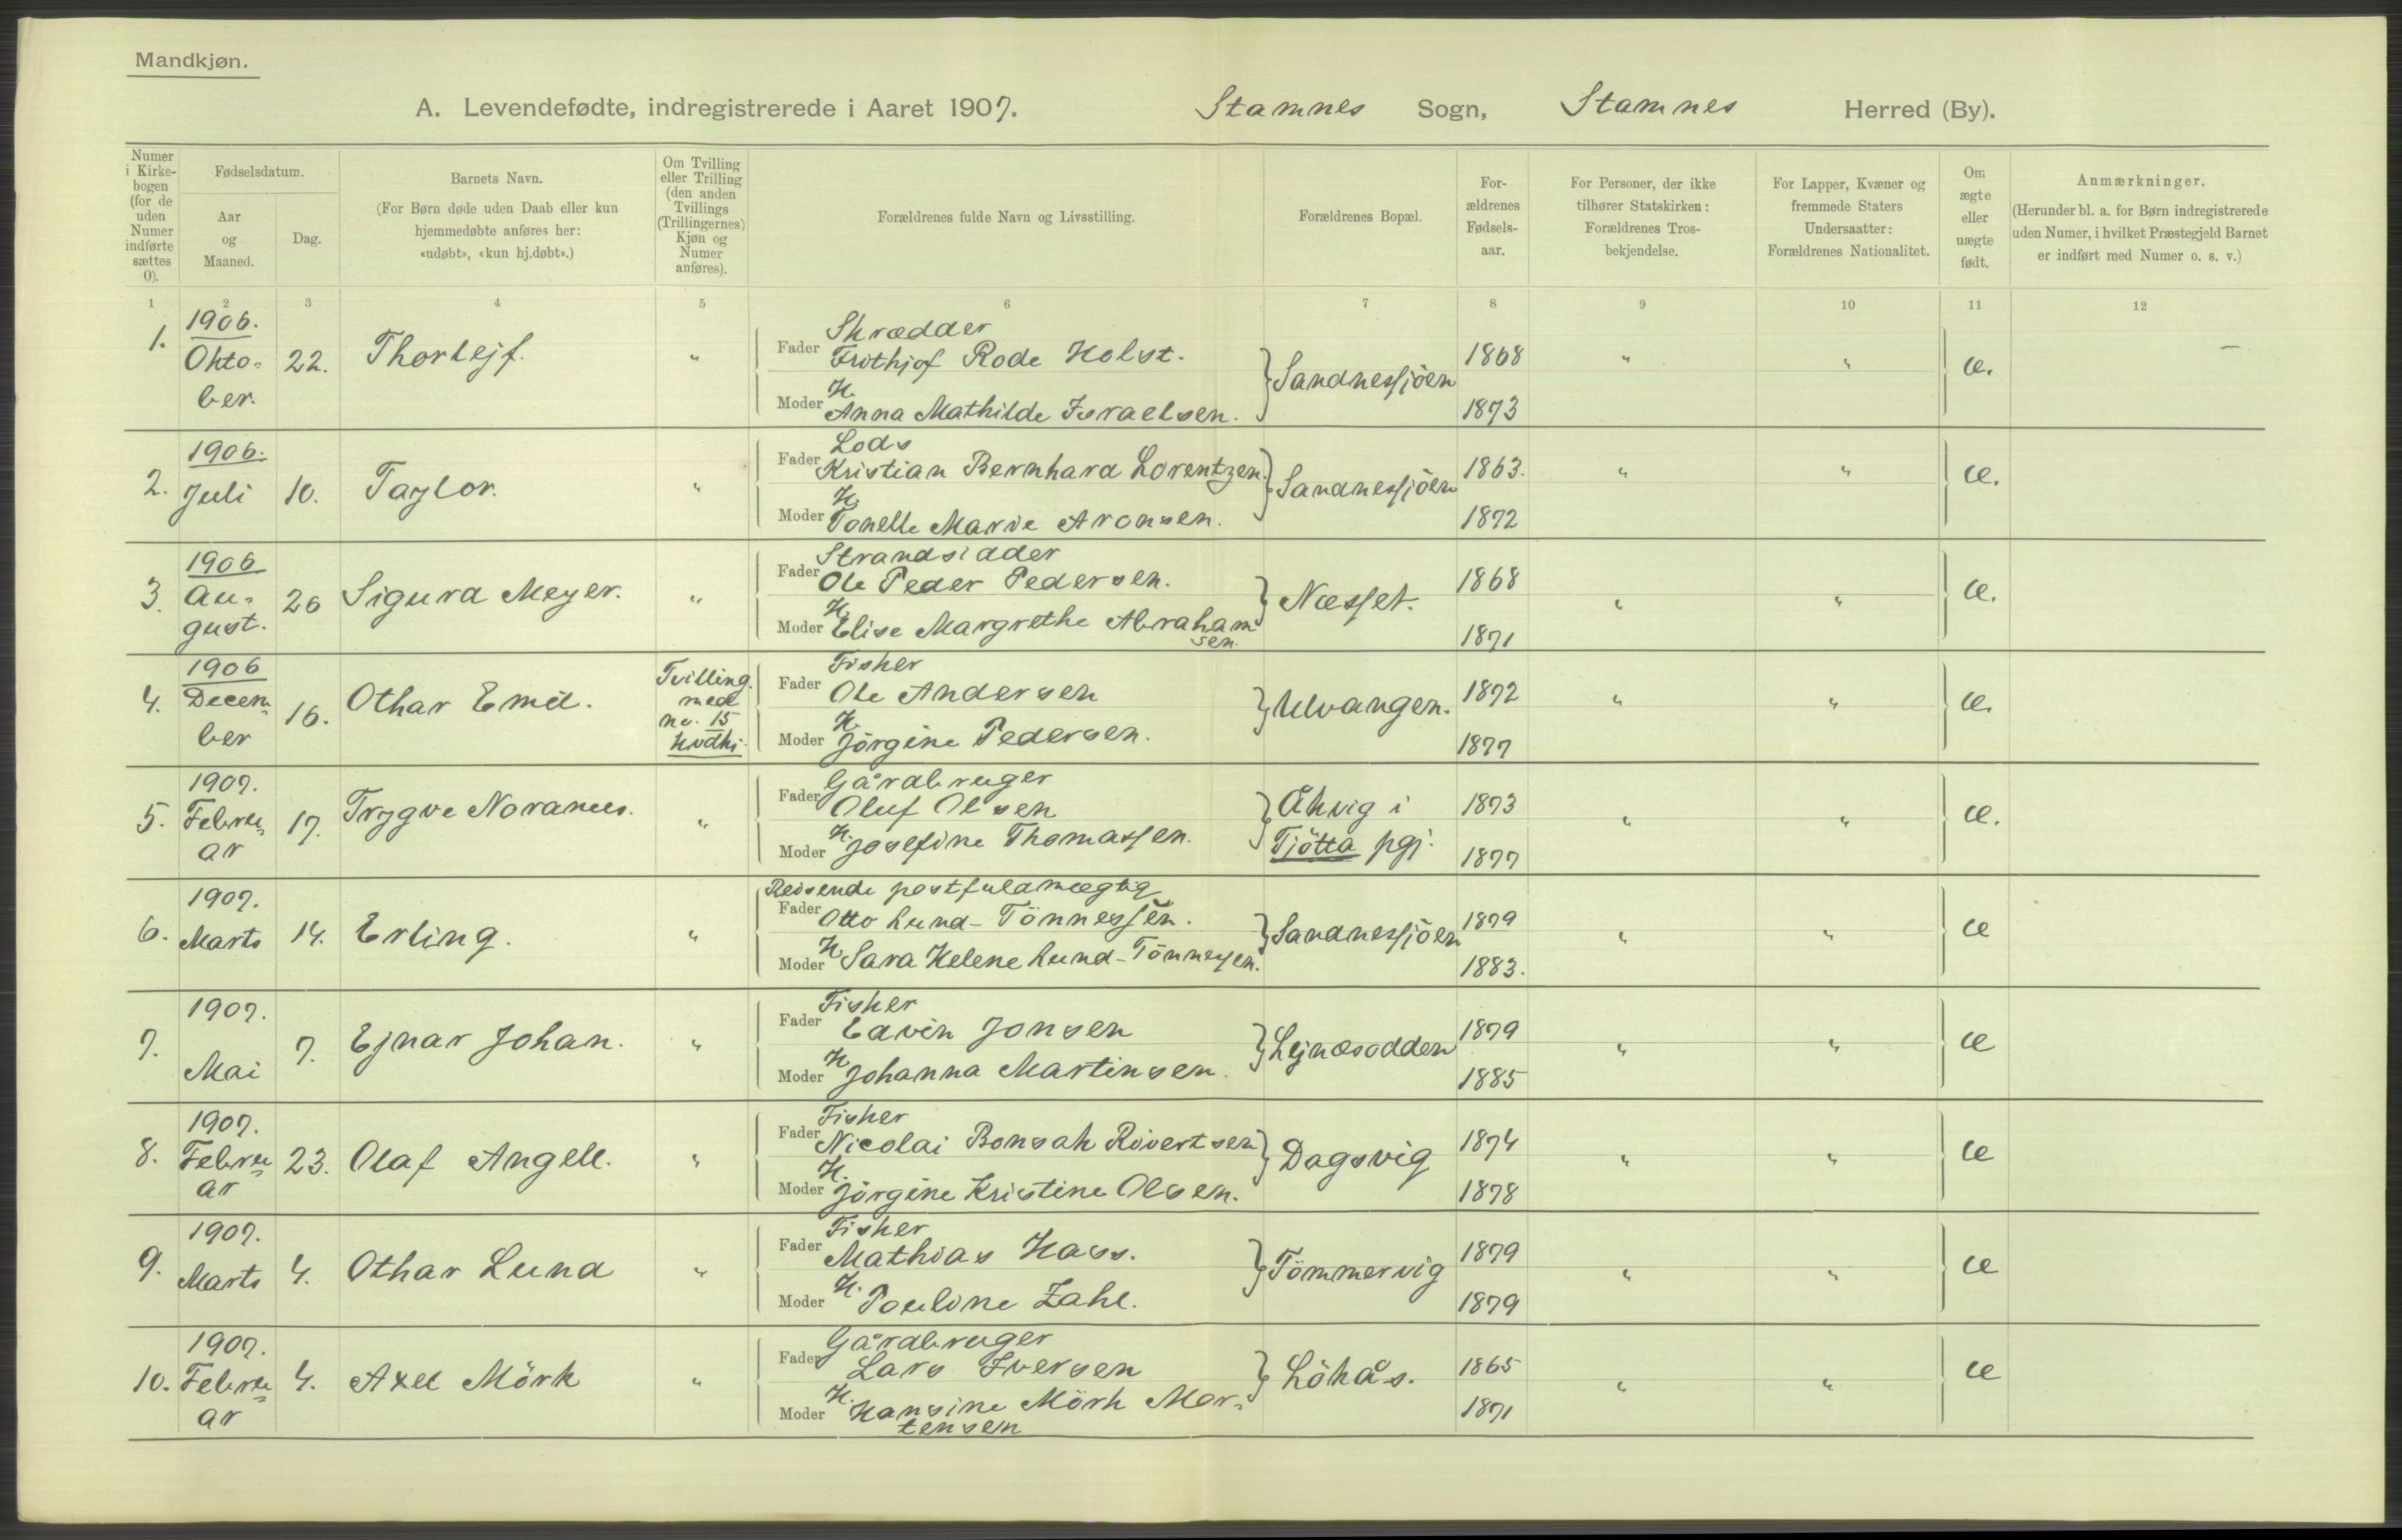 Mandkjøn.
A. Levendefødte, indregistrerede i Aaret 1907. Stamnes Sogn, Stamnes Herred (By).
Numer i Kirke-bogen (for de uden Numer indførte sættes 0).
Fødselsdatum.
Aar og Maaned.
Dag.
Barnets Navn.
(For Børn døde uden Daab eller kun hjemmedøbte anføres her: «udøbt», «kun hj.døbt».)
Om Tvilling eller Trilling (den anden Tvillings (Trillingernes) Kjøn og Numer anføres).
Forældrenes fulde Navn og Livsstilling.
Forældrenes Bopæl.
For-ældrenes Fødsels-aar.
For Personer, der ikke tilhører Statskirken: Forældrenes Tros-bekjendelse.
For Lapper, Kvæner og fremmede Staters Undersaatter: Forældrenes Nationalitet.
Om ægte eller uægte født.
Anmærkninger.
(Herunder bl. a. for Børn indregistrerede uden Numer, i hvilket Præstegjeld Barnet er indført med Numer o. s. v.)
1 2 3 4 5 6 7 8 9 10 11 12
1. 1906. Okto-ber. 22. Thorlejf. "
Skrædder
Fader Frithjof Rode Holst. Sandnessjöen 1868 " " æ. —
H.
Moder Anna Mathilde Israelsen. 1873
2. 1906. Juli 10. Taylor. "
Lods
Fader Kristian Bernhard Lorentzen. Sandnessjöen 1863. " " æ.
H.
Moder Tonelle Marie Aronsen. 1872
3. 1906 Au-gust. 26 Sigurd Meyer. "
Strandsidder
Fader Ole Peder Pedersen. Næsset. 1868 " " æ.
H.
Moder Elise Margrethe Abraham
sen. 1871
4. 1906 Decem-ber 16. Othar Emil. Tvilling. med no. 15 kvdkj.
Fisker
Fader Ole Andersen Ulvangen. 1872 " " æ.
H.
Moder Jörgine Pedersen. 1877
5. 1907. Febru-ar 17. Trygve Nordnes. "
Gårdbruger
Fader Oluf Olsen Åkvig i Tjötta pgj. 1873 " " æ.
H.
Moder Josefine Thomassen. 1877
6. 1907. Marts 14. Erling. "
Reisende postfuldmægtig
Fader Otto Lund-Tönnessen. Sandnessjöen 1879 " " æ
H.
Moder Sara Helene Lund-Tönnessen. 1883.
7. 1907. Mai 7. Ejnar Johan. "
Fisker
Fader Edvin Jonsen Lejnesodden 1879 " " æ
H.
Moder Johanna Martinsen. 1885
8. 1907. Febru-ar 23. Olaf Angell. "
Fisker
Fader Nicolai Bonsak Rivertsen Dagsvig 1874 " " æ
H.
Moder Jörgine Kristine Olsen. 1878
9. 1907. Marts 4. Othar Lund "
Fisker
Fader Mathias Hass. Tömmervig 1879 " " æ
H.
Moder Pouline Zahl. 1879
10. 1907. Febru-ar 4. Axel Mörk "
Gårdbruger
Fader Lars Iversen Lökås. 1865 " " æ
H.
Moder Hansine Mörk Mor-
tensen 1871